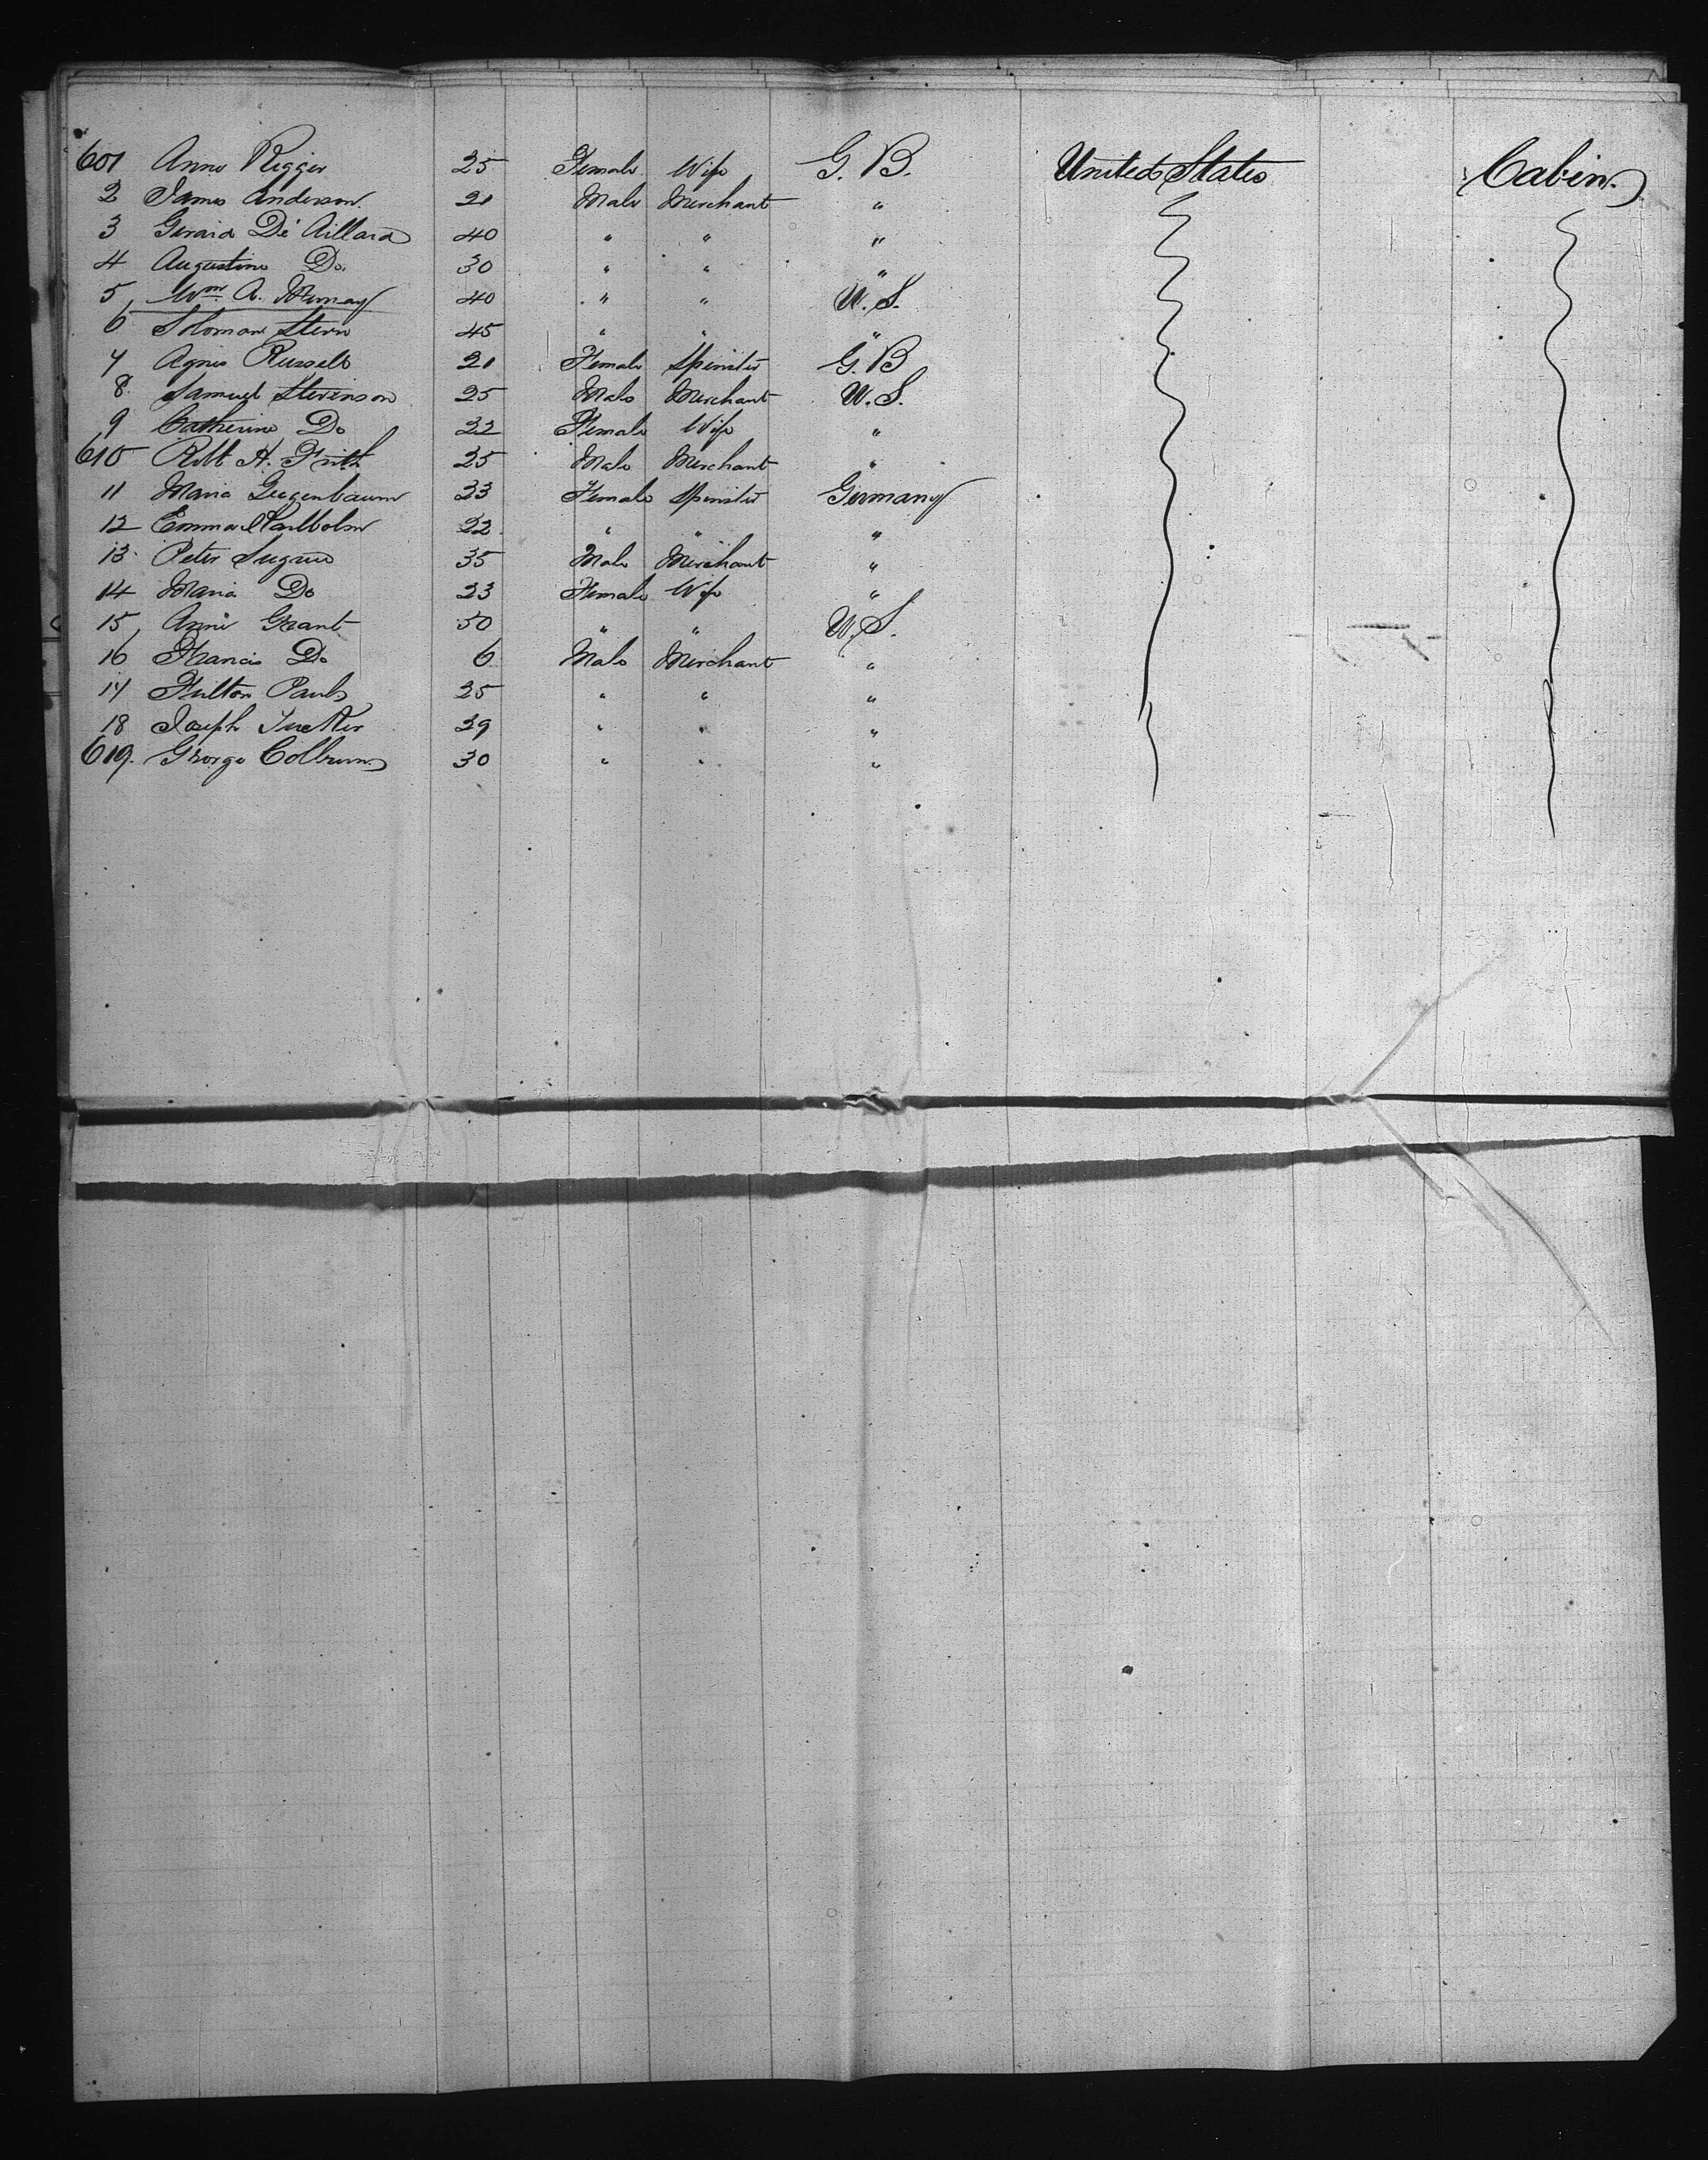 601 Anne Rigger 25 Female Wife G. B. United States Cabin.
2 James Anderson. 21 Male Merchant "
3 Girard De Aillard 40 " " "
4 Augustine Do. 30 " " "
5 Wm A. Murray 40 " " U. S.
6 Soloman Stern 45 " " "
7 Agnes Russell 21 Female Spinster G. B
8 Samuel Stevenson 25 Male Merchant U. S.
9 Catherine Do 22 Female Wife "
610 Robt H. Frith 25 Male Merchant "
11 Maria Gugenbaum 23 Female Spinster Germany
12 Emma 22 " " "
13 Peter Sugrue 35 Male Merchant "
14 Maria Do 23 Female Wife "
15 Anne Grant 50 " " U. S.
16 Francis Do 6 Male Merchant "
17 Fulton Paul 25 " " "
18 Joseph Tucker 29 " " "
619. George Colburn 30 " " "